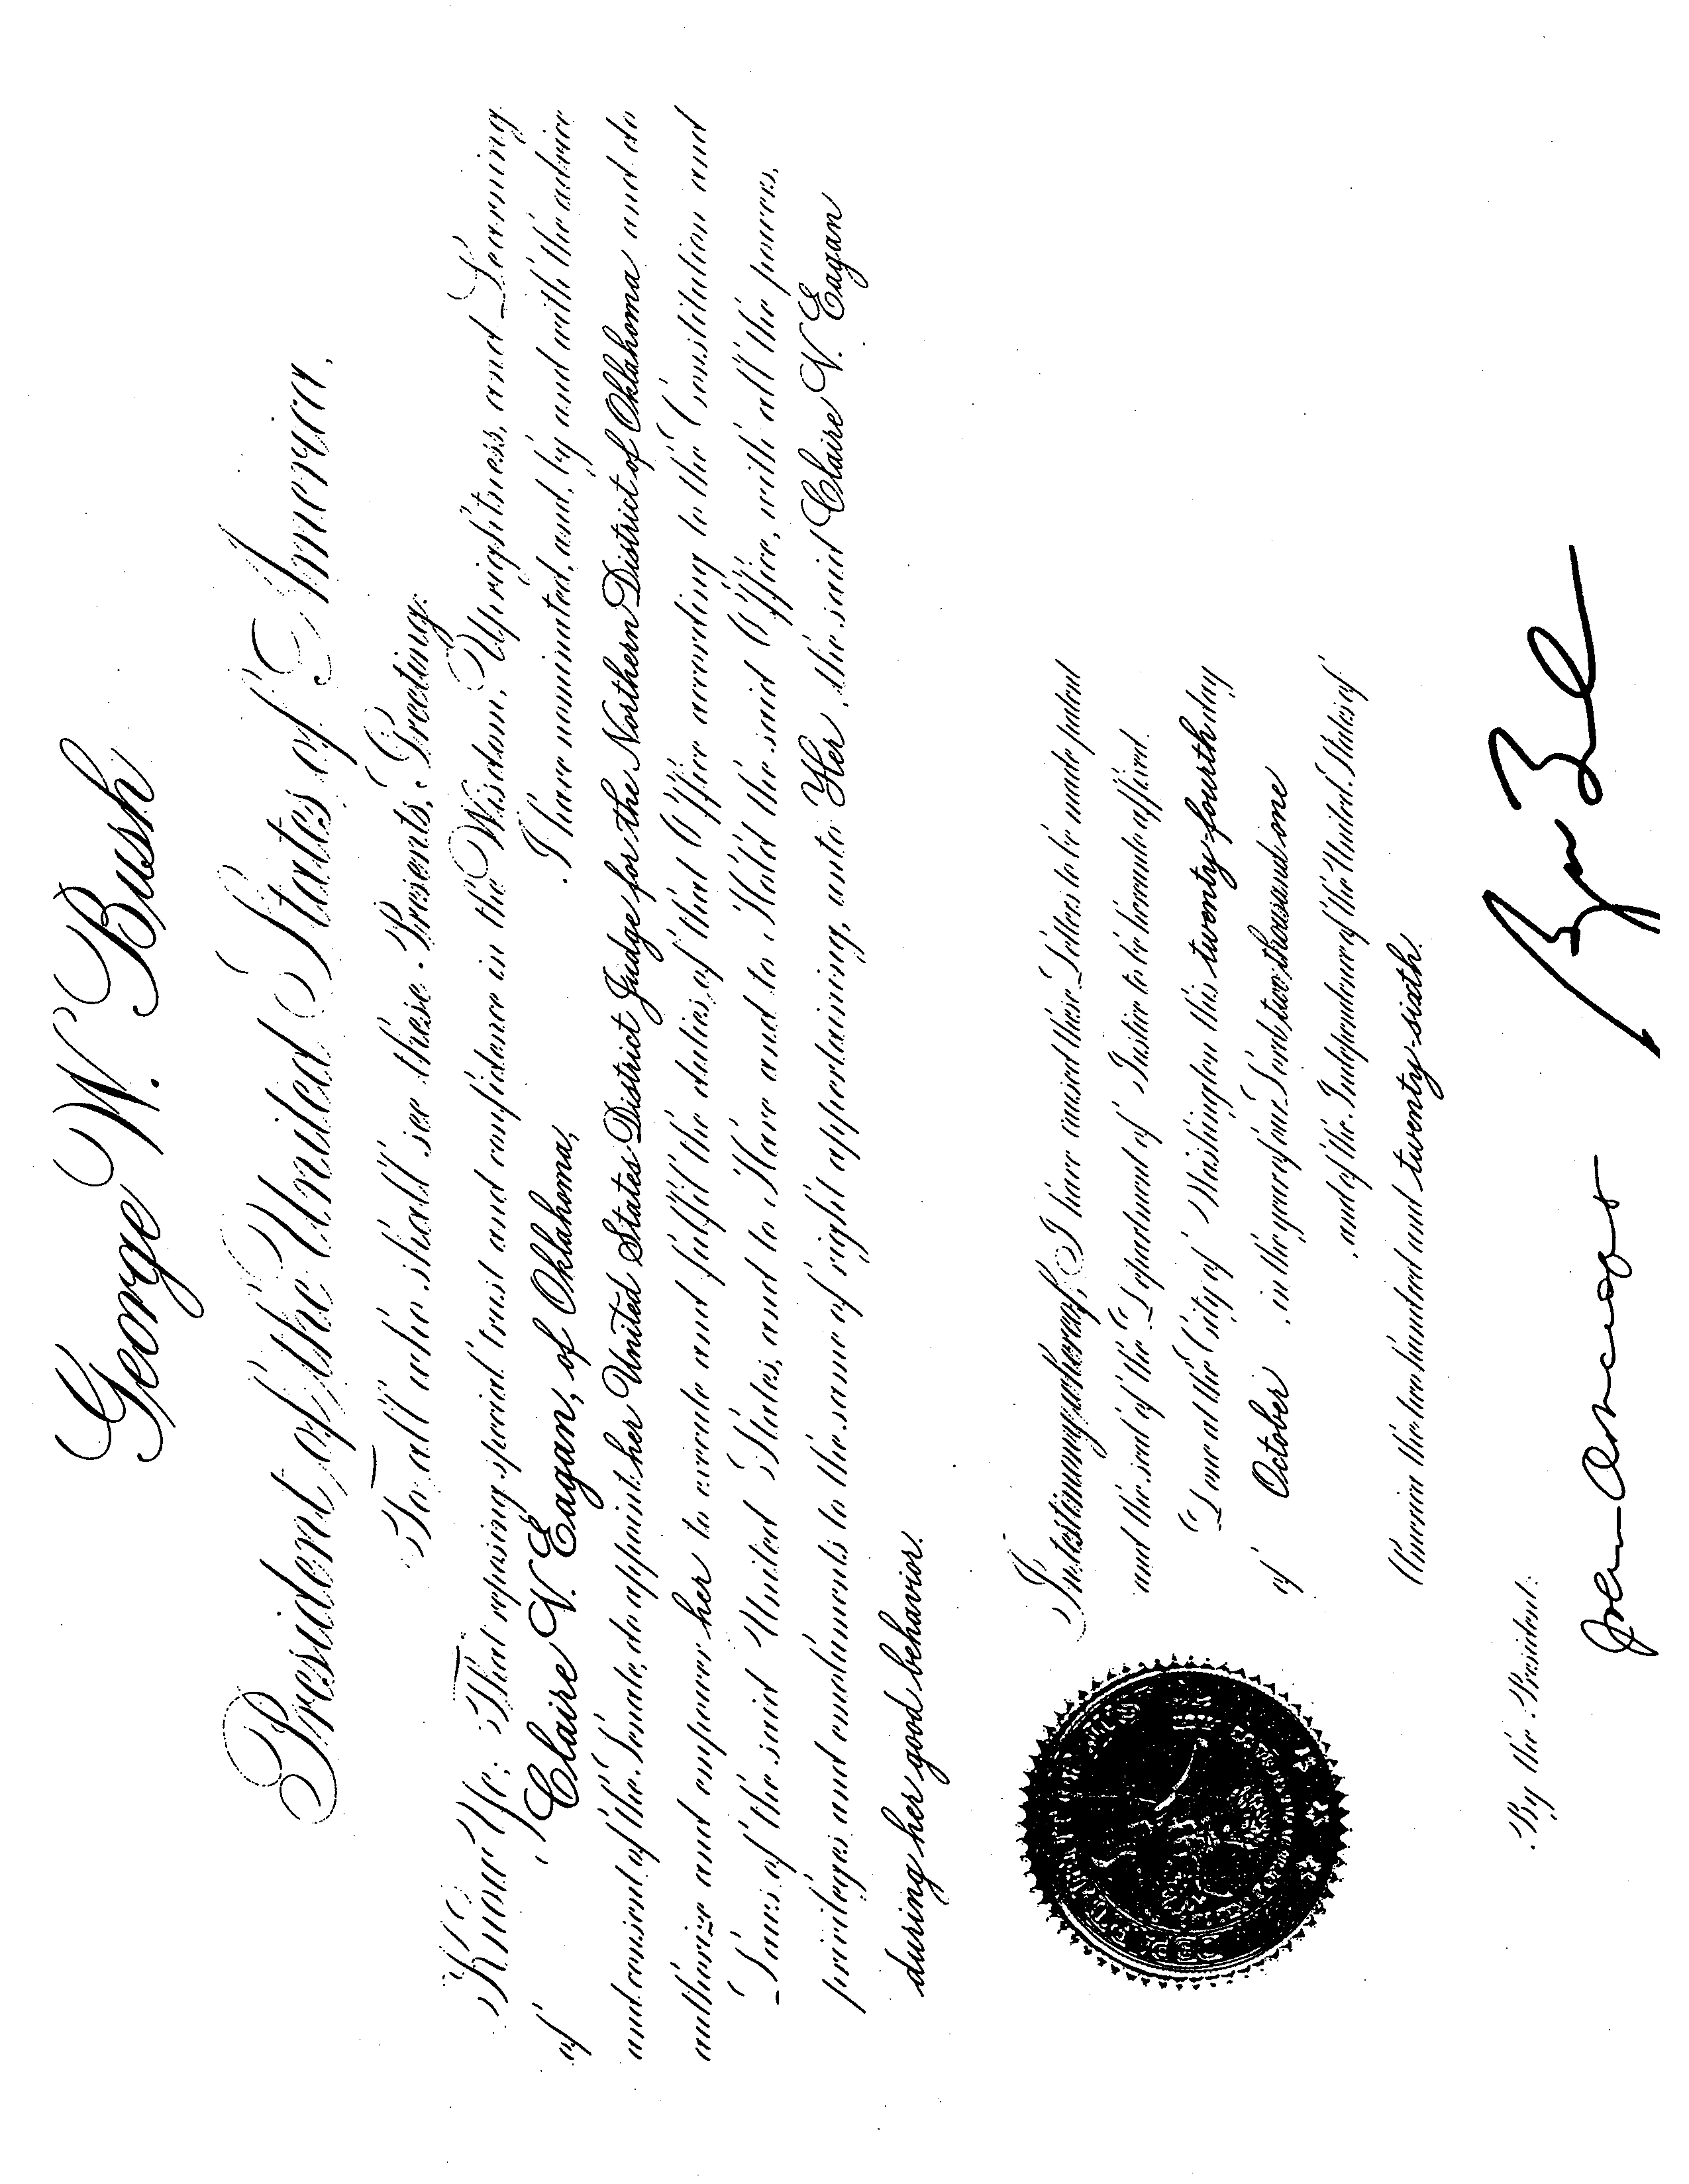 George W. Bush
President of the United States of America.
To all who shall see these Presents, Greeting:
Know Ye; That reposing special trust and confidence in the Wisdom, Uprightness, and Learning
of Claire V. Eagan, of Oklahoma, I have nominated, and, by and with the advice
and consent of the Senate, do appoint her United States District Judge for the Northern District of Oklahoma and do
authorize and empower her to execute and fulfil the duties of that Office according to the Constitution and
Laws of the said United States, and to Have and to Hold the said Office, with all the powers,
privileges and emoluments to the same of right appertaining, unto Her, the said Claire V. Eagan
during her good behavior.
In testimony whereof, I have caused these Letters to be made patent
and the seal of the Department of Justice to be hereunto affixed.
Done at the City of Washington this twenty-fourth day
of October, in the year of our Lord two thousand one
and of the Independence of the United States of
America the two hundred and twenty-sixth.
By the President: